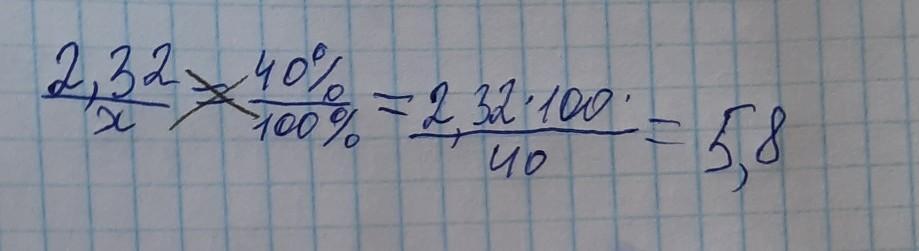 2,32/x = 40%/100% = 2,32·100·/40 = 5,8